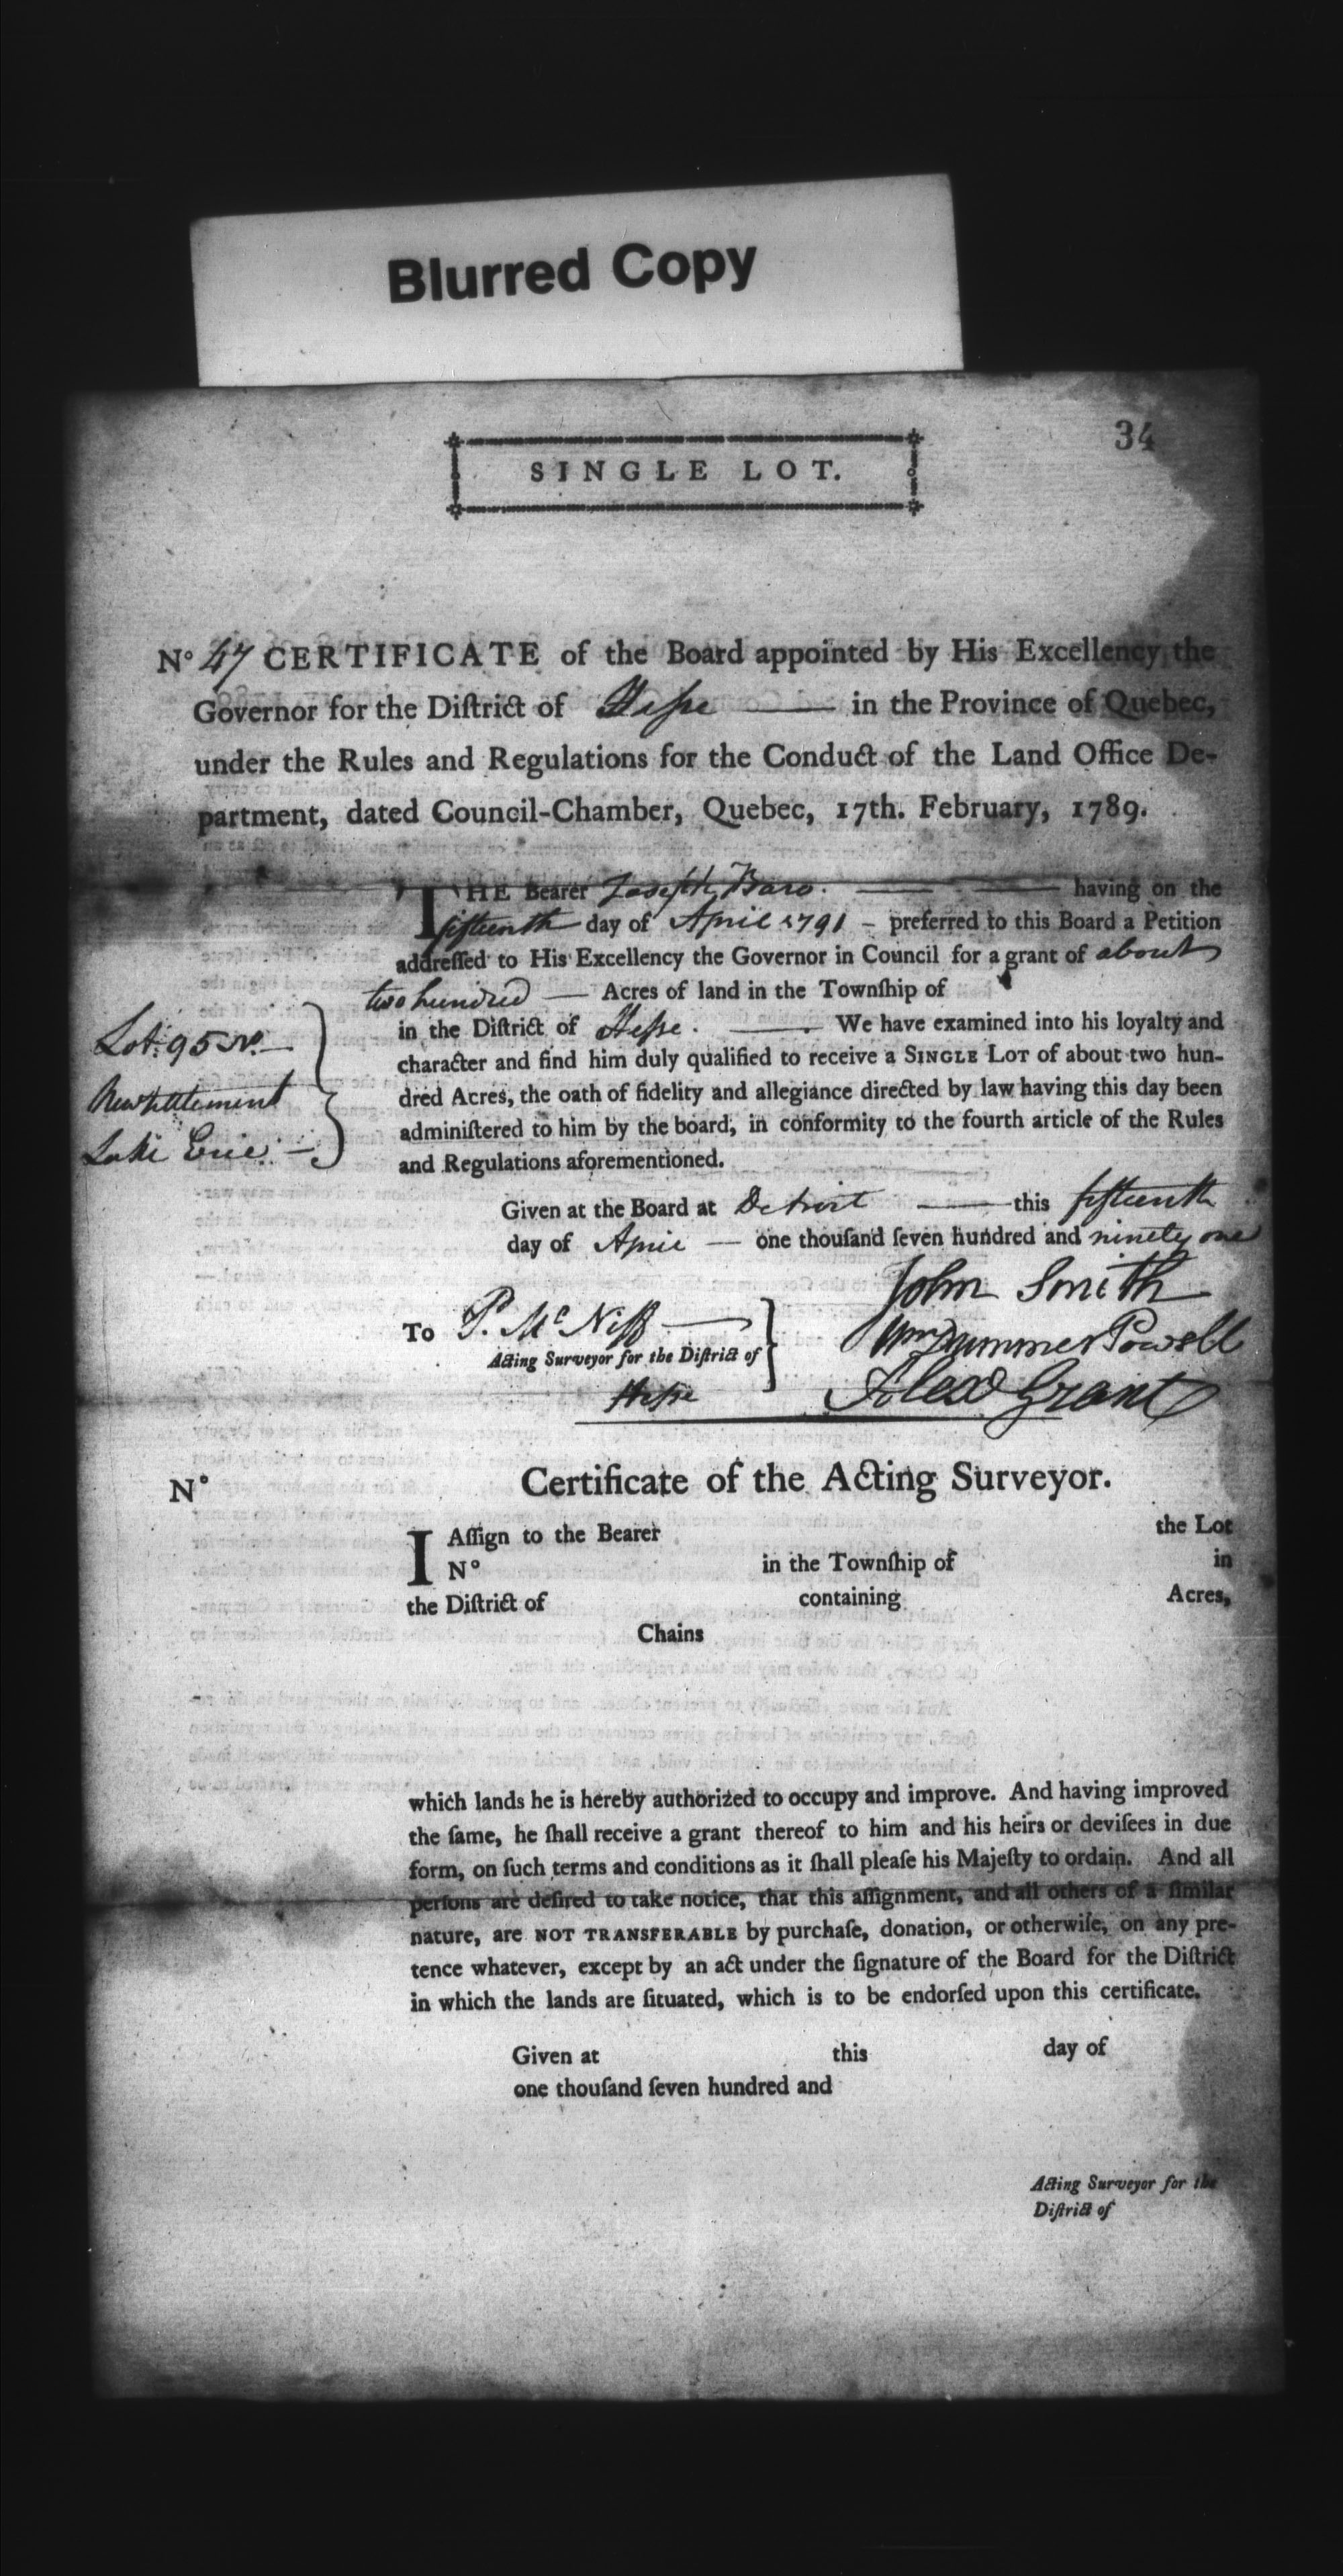 Blurred Copy
34
SINGLE LOT.
N° 47 CERTIFICATE of the Board appointed by His Excellency the
Governor for the Diſtrict of Heſse — in the Province of Quebec,
under the Rules and Regulations for the Conduct of the Land Office De-
partment, dated Council-Chamber, Quebec, 17th. February, 1789.
THE Bearer Joseph Baro. — — having on the
fifteenth day of April 1791 – preferred to this Board a Petition
addreſſed to His Excellency the Governor in Council for a grant of about
two hundred — Acres of land in the Townſhip of
in the Diſtrict of Heſse. — We have examined into his loyalty and
character and find him duly qualified to receive a SINGLE LOT of about two hun-
dred Acres, the oath of fidelity and allegiance directed by law having this day been
adminiſtered to him by the board, in conformity to the fourth article of the Rules
and Regulations aforementioned.
Lot 95 N. —
New settlement
Lake Erie. —
Given at the Board at Detroit — this fifteenth
day of April — one thouſand ſeven hundred and ninety one
John Smith
Wm Dummer Powell
Alex Grant
To P. McNiff —
Acting Surveyor for the Diſtrict of
Heſse
N°
Certificate of the Acting Surveyor.
I Aſſign to the Bearer the Lot
N° in the Townſhip of in
the Diſtrict of containing Acres,
Chains
which lands he is hereby authorized to occupy and improve. And having improved
the ſame, he ſhall receive a grant thereof to him and his heirs or deviſees in due
form, on ſuch terms and conditions as it ſhall pleaſe his Majeſty to ordain. And all
perſons are deſired to take notice, that this aſſignment, and all others of a ſimilar
nature, are NOT TRANSFERABLE by purchaſe, donation, or otherwiſe, on any pre-
tence whatever, except by an act under the ſignature of the Board for the Diſtrict
in which the lands are ſituated, which is to be endorſed upon this certificate.
Given at this day of
one thouſand ſeven hundred and
Acting Surveyor for the
Diſtrict of